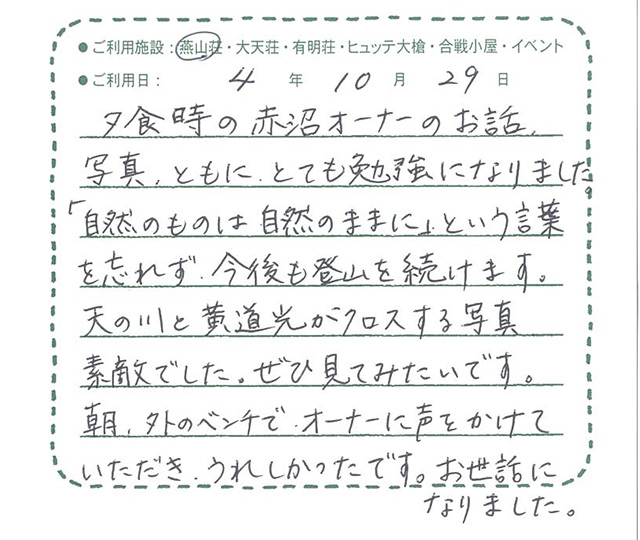 ●ご利用施設：燕山荘・大天荘・有明荘・ヒュッテ大槍・合戦小屋・イベント
●ご利用日： 4 年 10 月 29 日
夕食時の赤沼オーナーのお話、
写真、ともに、とても勉強になりました。
「自然のものは自然のままに」という言葉
を忘れず、今後も登山を続けます。
天の川と黄道光がクロスする写真
素敵でした。ぜひ見てみたいです。
朝、外のベンチで、オーナーに声をかけて
いただき、うれしかったです。お世話に
なりました。